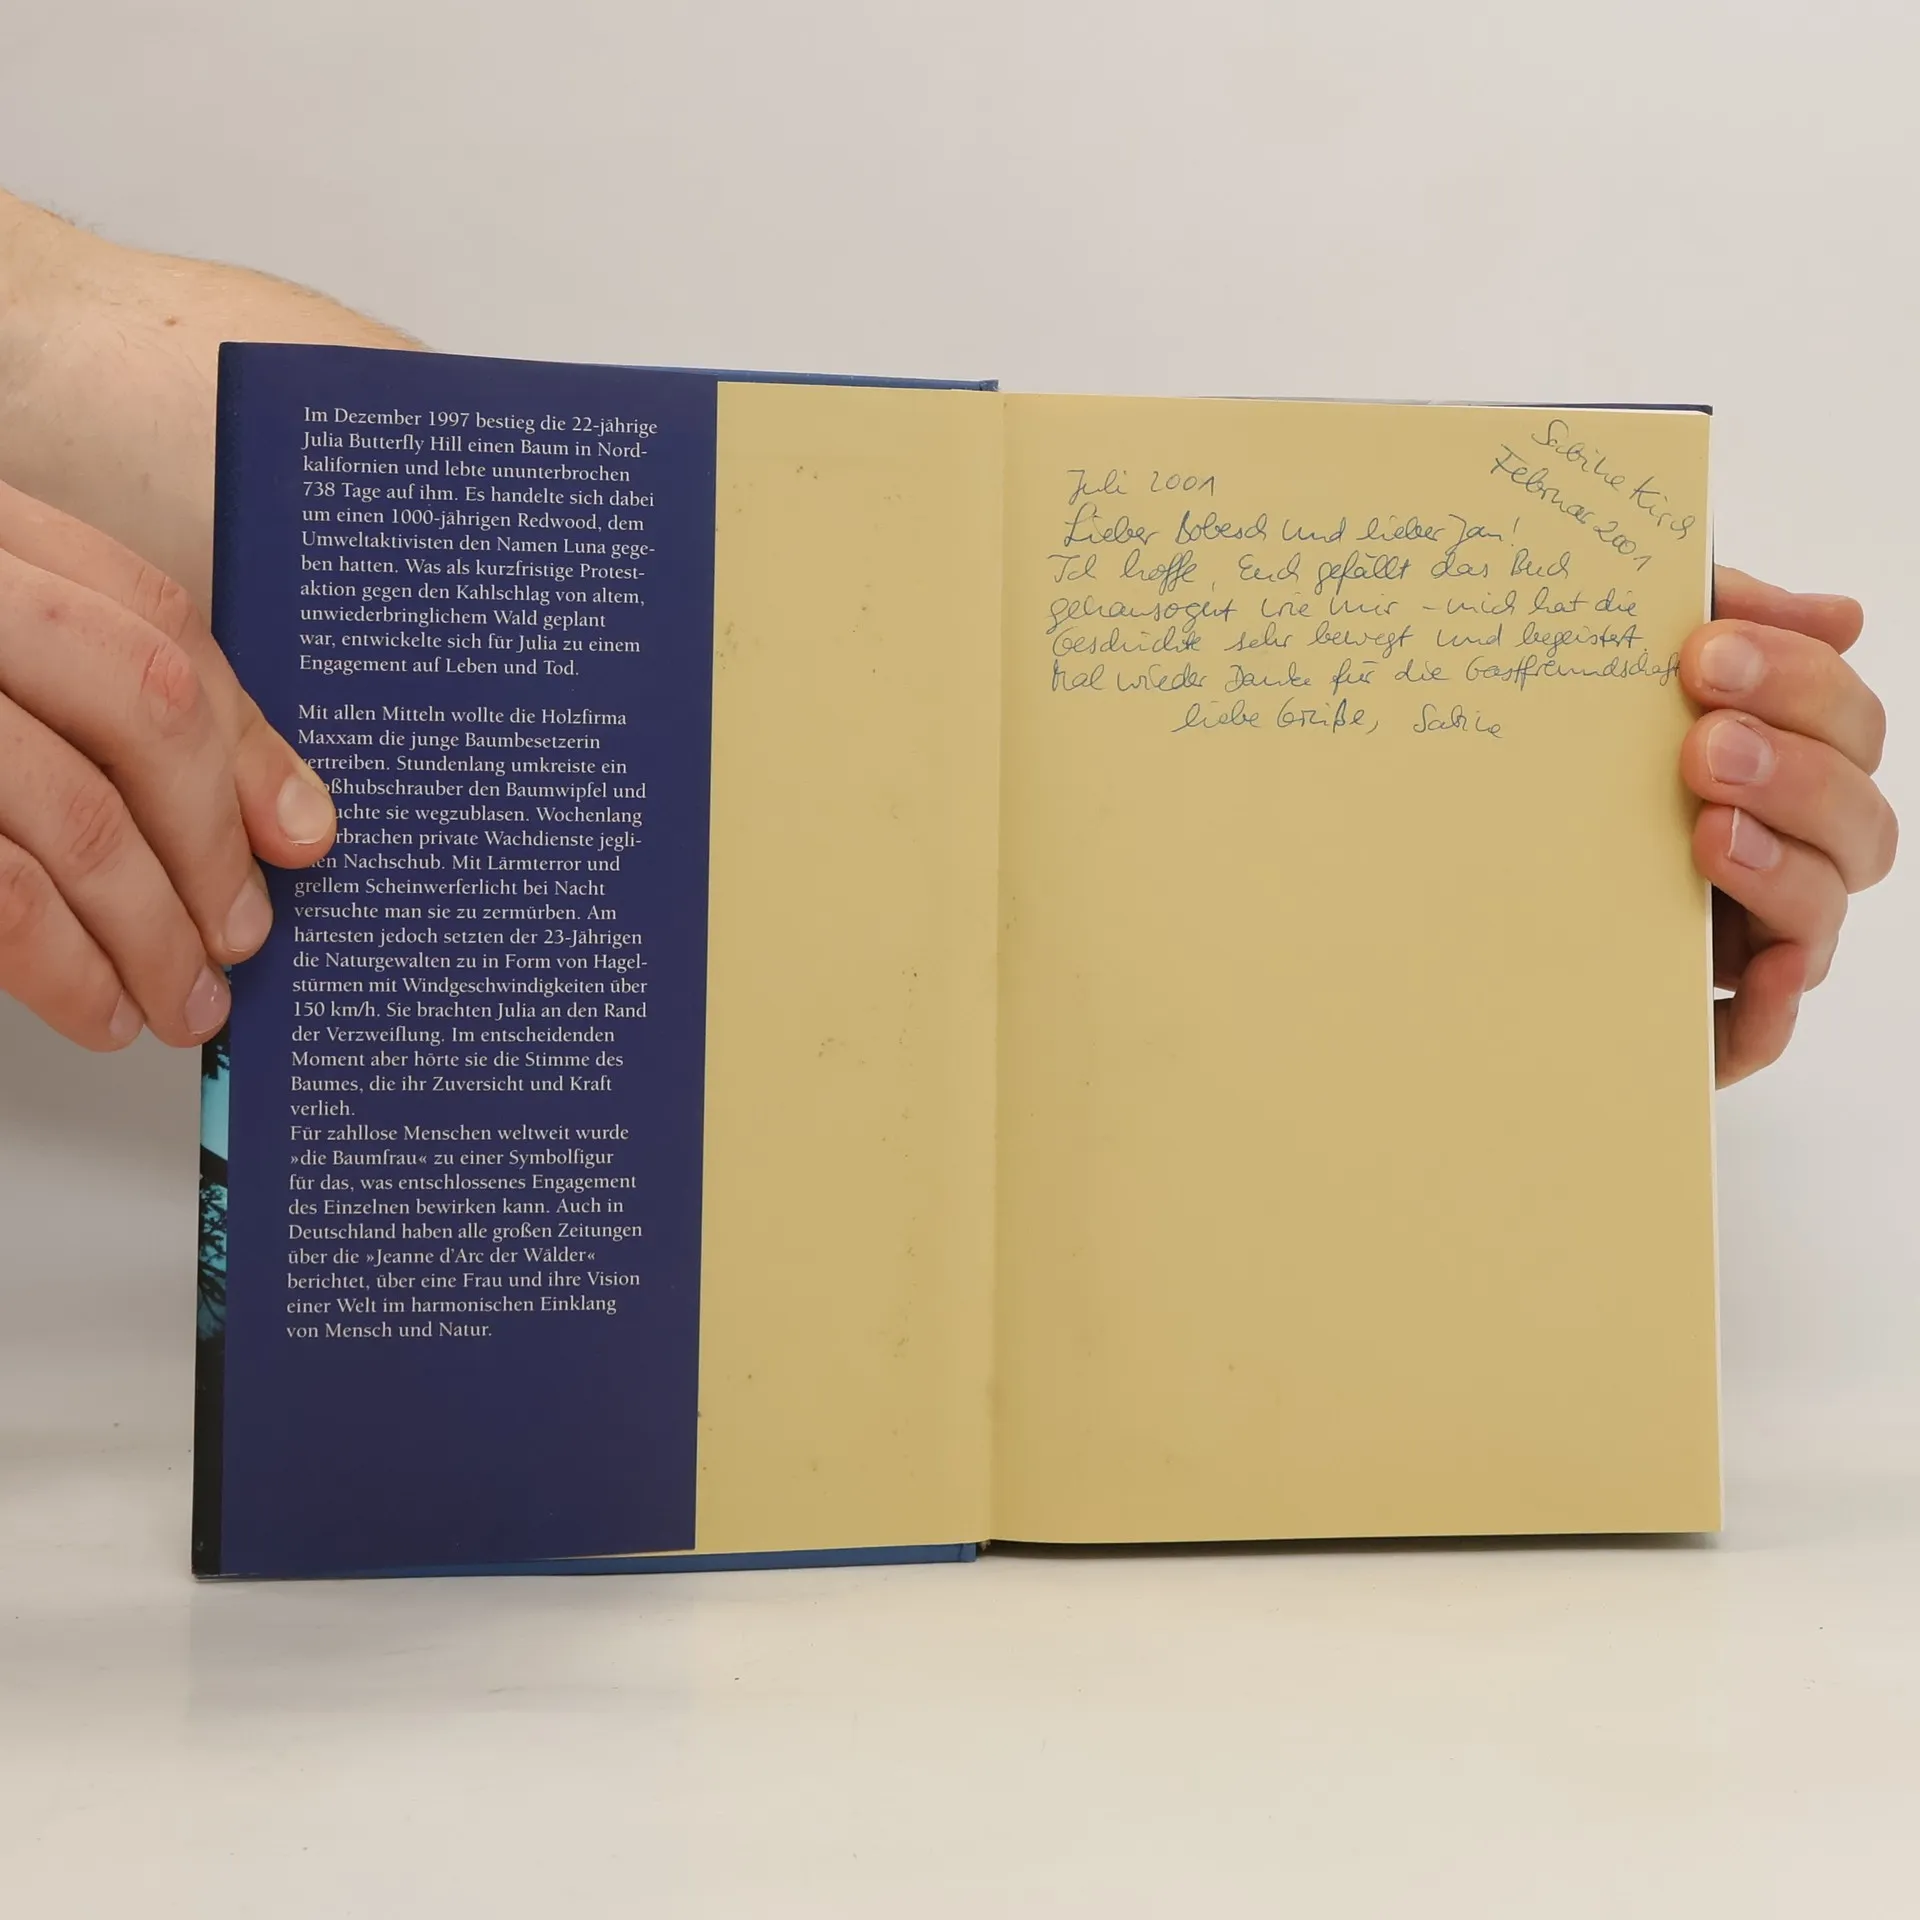 Im Dezember 1997 bestieg die 22-jährige
Julia Butterfly Hill einen Baum in Nord-
kalifornien und lebte ununterbrochen
738 Tage auf ihm. Es handelte sich dabei
um einen 1000-jährigen Redwood, dem
Umweltaktivisten den Namen Luna gege-
ben hatten. Was als kurzfristige Protest-
aktion gegen den Kahlschlag von altem,
unwiederbringlichem Wald geplant
war, entwickelte sich für Julia zu einem
Engagement auf Leben und Tod.
Mit allen Mitteln wollte die Holzfirma
Maxxam die junge Baumbesetzerin
ertreiben. Stundenlang umkreiste ein
oßhubschrauber den Baumwipfel und
uchte sie wegzublasen. Wochenlang
rbrachen private Wachdienste jegli-
en Nachschub. Mit Lärmterror und
grellem Scheinwerferlicht bei Nacht
versuchte man sie zu zermürben. Am
härtesten jedoch setzten der 23-Jährigen
die Naturgewalten zu in Form von Hagel-
stürmen mit Windgeschwindigkeiten über
150 km/h. Sie brachten Julia an den Rand
der Verzweiflung. Im entscheidenden
Moment aber hörte sie die Stimme des
Baumes, die ihr Zuversicht und Kraft
verlieh.
Für zahllose Menschen weltweit wurde
»die Baumfrau« zu einer Symbolfigur
für das, was entschlossenes Engagement
des Einzelnen bewirken kann. Auch in
Deutschland haben alle großen Zeitungen
über die »Jeanne d'Arc der Wälder«
berichtet, über eine Frau und ihre Vision
einer Welt im harmonischen Einklang
von Mensch und Natur.
Sabine Kirch
Februar 2001
Juli 2001
Lieber Bobesch und lieber Jan!
Ich hoffe, Euch gefällt das Buch
genausogut wie mir – mich hat die
Geschichte sehr bewegt und begeistert.
Mal wieder Danke für die Gastfreundschaft
liebe Grüße, Sabine